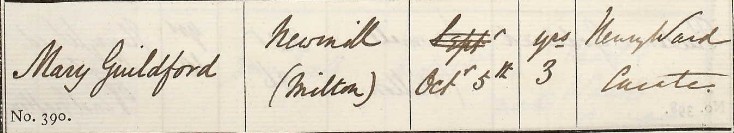 Mary Guildford
No. 390.
Newmill
(Milton)
Septr
Octr 5th
yrs
3
Henry Ward
Curate.